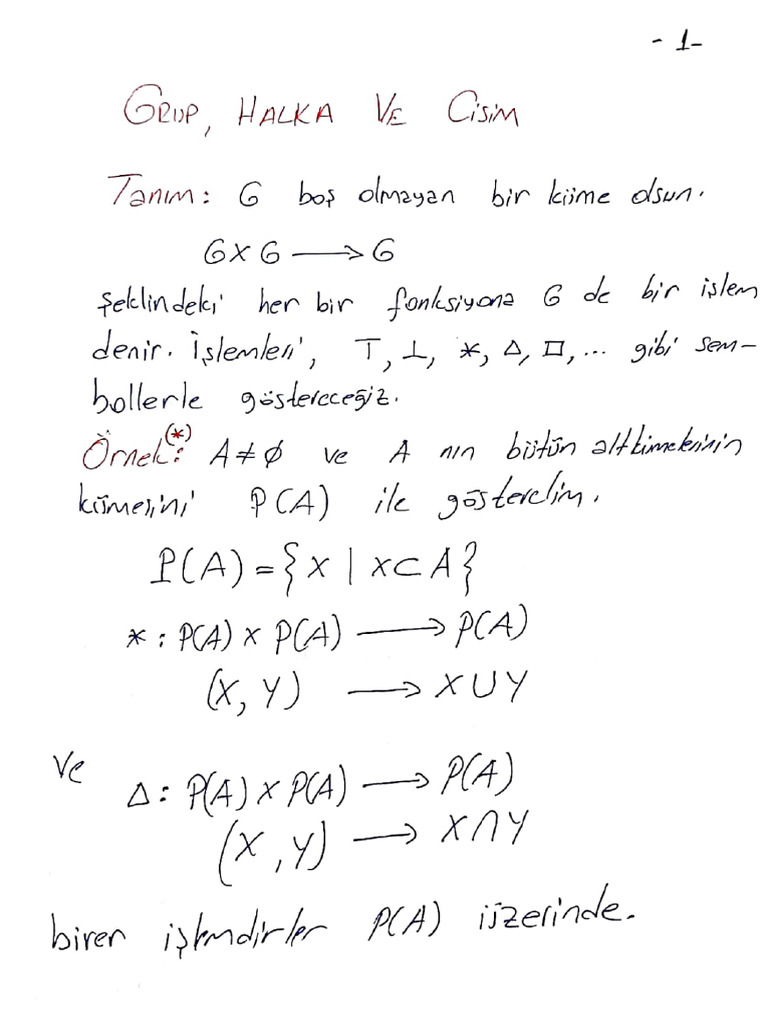 - 1-
GRUP, HALKA VE CİSİM
Tanım: G boş olmayan bir küme olsun.
G X G → G
şeklindeki her bir fonksiyona G de bir işlem
denir. İşlemleri, ⊤, ⊥, *, △, □, ... gibi sem-
bollerle göstereceğiz.
Örnek(*): A ≠ ∅ ve A nın bütün altkümelerinin
kümesini P(A) ile gösterelim.
P(A) = { X | X ⊂ A }
* : P(A) x P(A) → P(A)
(X, Y) → X ∪ Y
ve
△ : P(A) x P(A) → P(A)
(X, Y) → X ∩ Y
birer işlemdirler P(A) üzerinde.